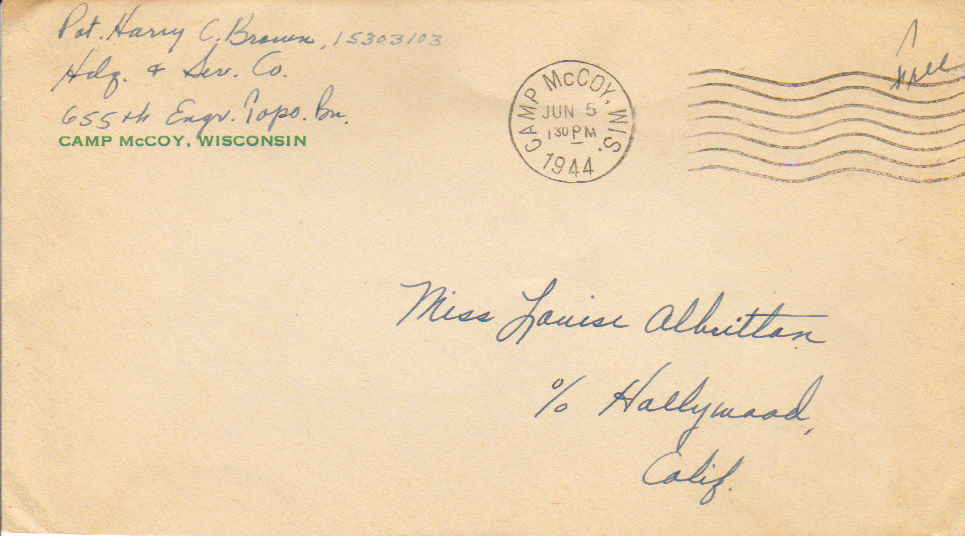 Pvt. Harry C. Brown, 15303103
Hdq. & Serv. Co.
655th Engr. Topo. Bn.
CAMP McCOY, WISCONSIN
CAMP McCOY, WIS.
JUN 5
1 30 PM
1944
Free
Miss Louise Albritton
℅ Hollywood,
Calif.